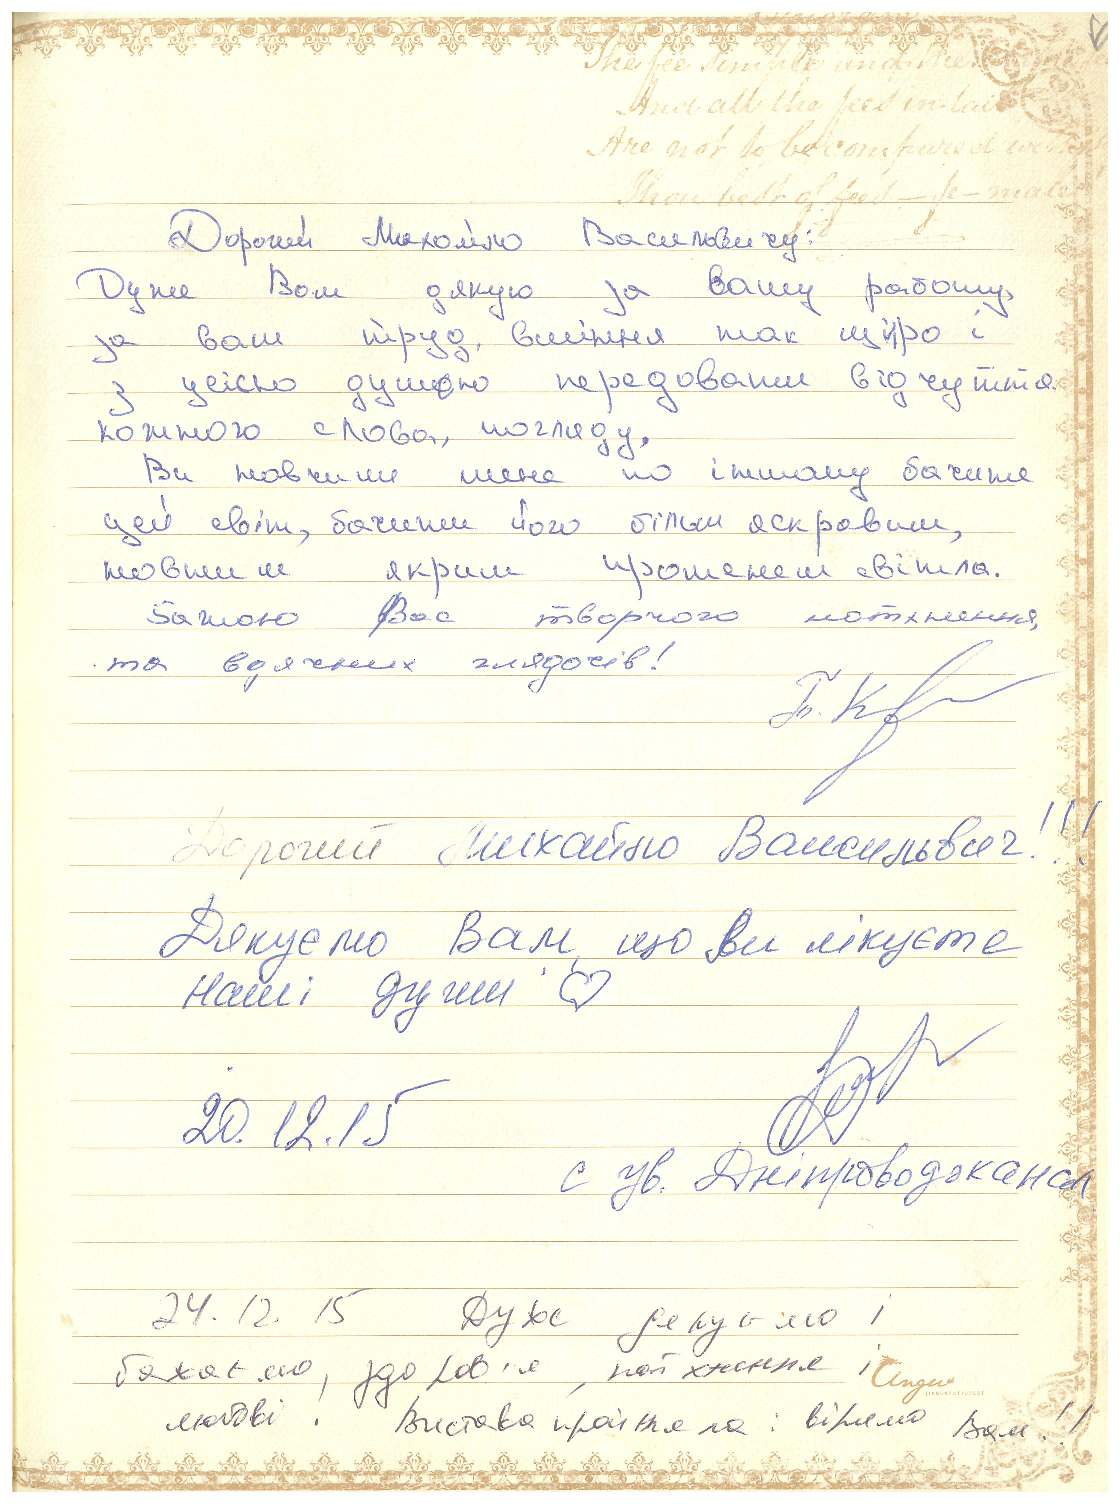 The fee simple and the
And all the feed in tail
Are not to be compared with
Thou best of feed — fe-male
Дорогий Михайло Васильвичу:
Дуже Вам дякую за вашу работу,
за ваш труд, вміння так щіро і
з усією душою передовати відчуття
кожного слова, погляду,
Ви навчили мене по іншому бачити
цей світ, бачити його більш яскравим,
повним якрим променем світла.
Бажаю Вас творчого натхнення,
та вдячних глядачів!
Т. К
Дорогий Михайло Васильвич!!!
Дякуємо Вам, що ви лікуєте
наші душі ♡
20.12.15
с ув. Дніпроводоканал
24.12.15 Дуже дякуємо і
бажаємо, здоров'я, натхнення і
любві! Вистава прийняла: віримо Вам!!